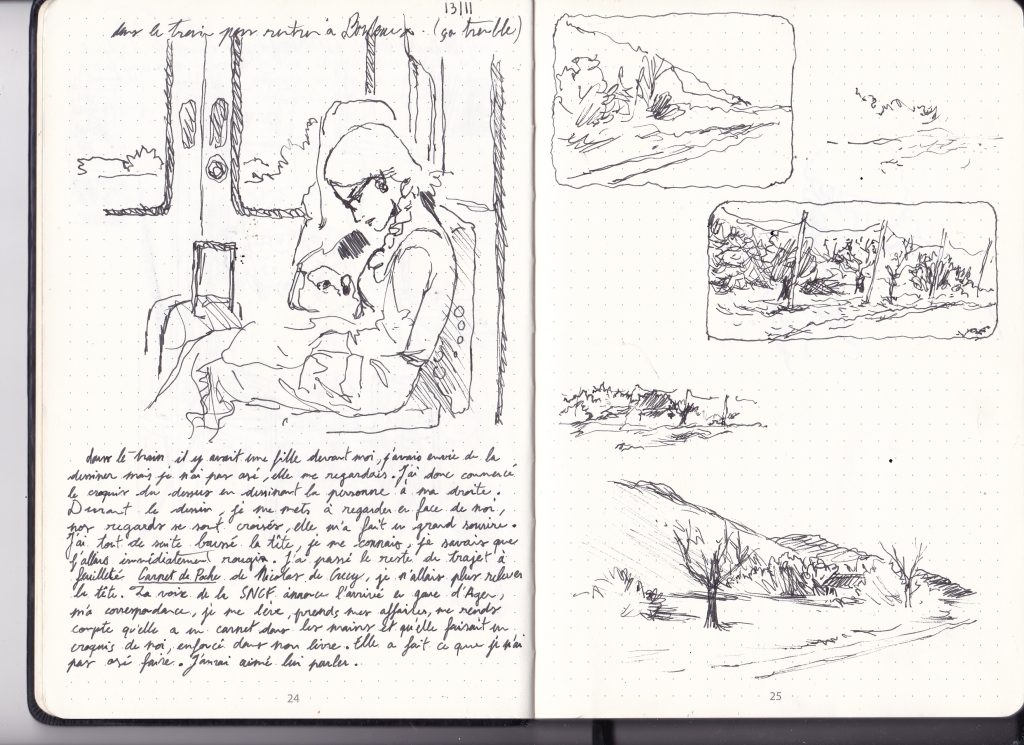 13/11
dans le train pour rentrer à Bordeaux. (ça tremble)
dans le train il y avait une fille devant moi, j'avais envie de la
dessiner mais je n'ai pas osé, elle me regardais. J'ai donc commencé
le croquis du dessus en dessinant la personne à ma droite.
Durant le dessin, je me mets à regarder en face de moi,
nos regards se sont croisés, elle m'a fait un grand sourire.
J'ai tout de suite baissé la tête, je me connais, je savais que
j'allais immédiatement rougir. J'ai passé le reste du trajet à
feuilleté Carnet de Poche de Nicolas de Crecy, je n'allais plus relever
la tête. La voix de la SNCF annonce l'arrivé en gare d'Agen,
ma correspondance, je me lève, prends mes affaires, me rends
compte qu'elle a un carnet dans les mains et qu'elle faisait un
croquis de moi, enfoncé dans mon livre. Elle a fait ce que je n'ai
pas osé faire. J'aurai aimé lui parler.
24
25